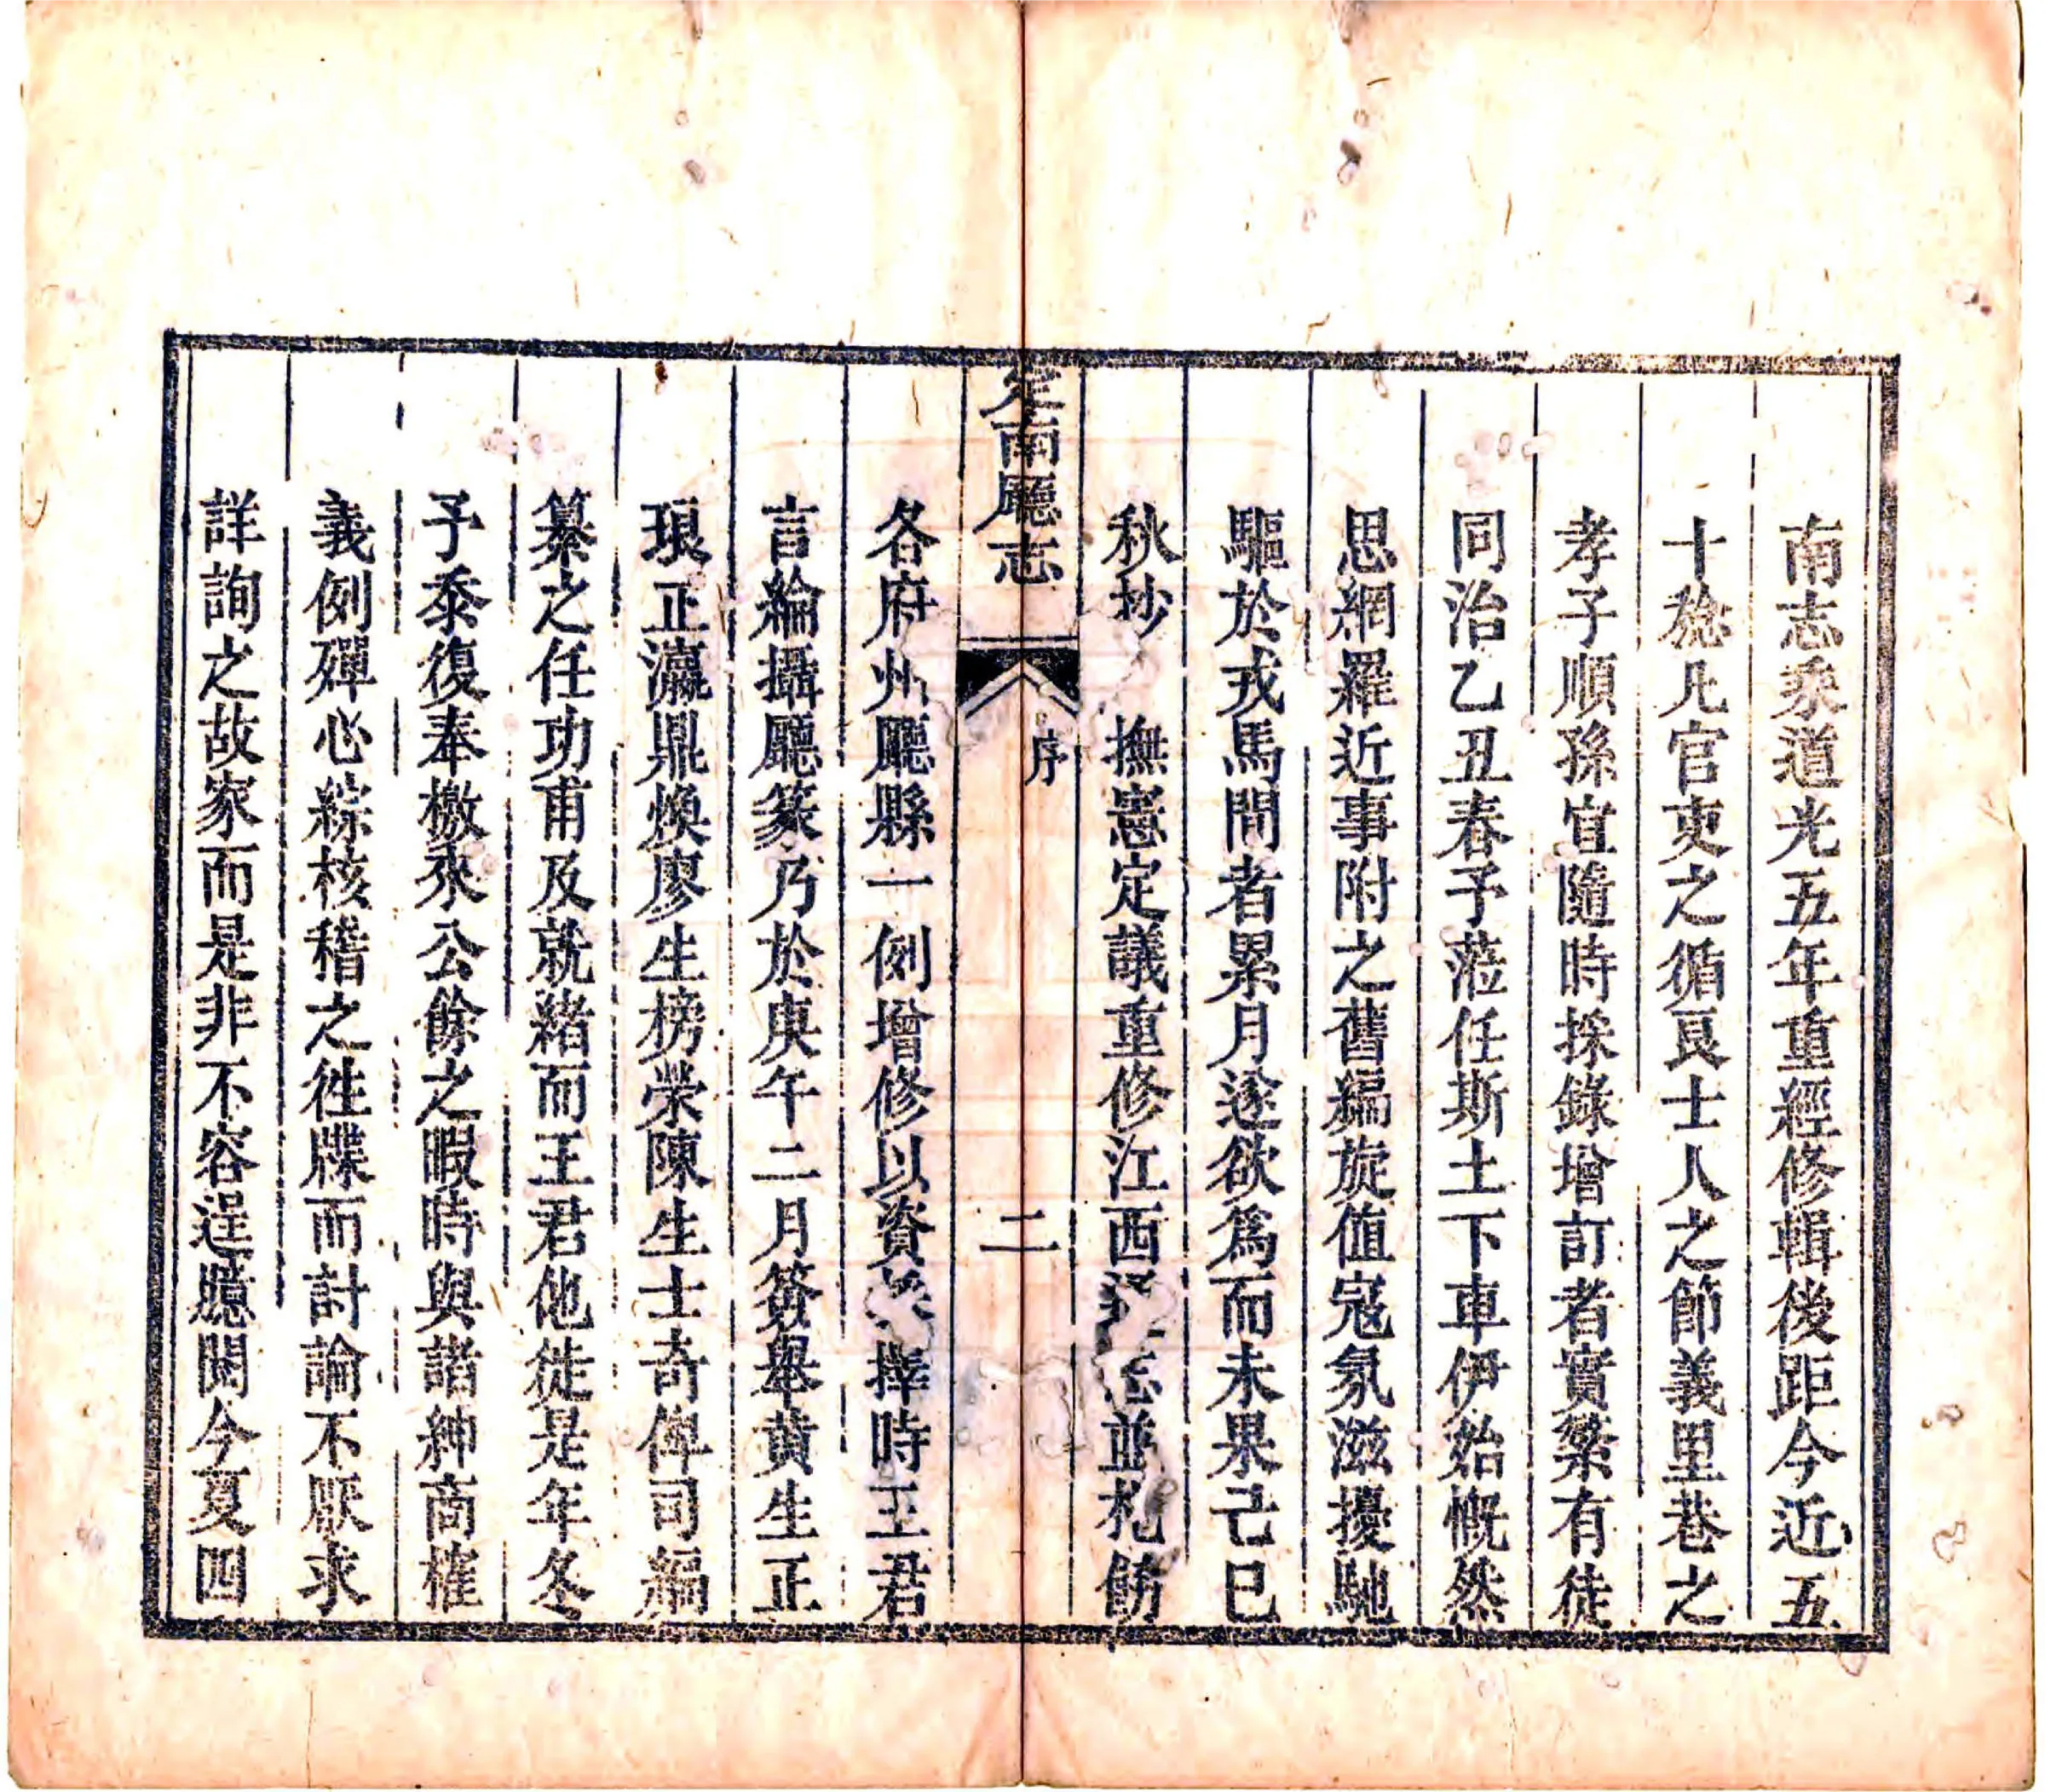 南志乘道光五年重經修輯後距今近五
十稔凡官吏之循良士人之節義里巷之
孝子順孫宜隨時採錄增訂者實繁有徒
同治乙丑春予蒞任斯土下車伊始慨然
思網羅近事附之舊編旋值寇氛滋擾馳
驅於戎馬間者累月遂欲爲而未果己巳
秋抄 撫憲定議重修江西志並札飭
定南廳志 序 二
各府州廳縣一例增修以資擇時王君
言綸攝廳篆乃於庚午二月簽舉黃生正
琅正瀛鼎煥廖生榜榮陳生士奇俾司編
纂之任功甫及就緒而王君他徙是年冬
予泰復奉檄來公餘之暇時與諸紳商榷
義例殫心綜核稽之往牒而討論不厭求
詳詢之故家而是非不容逞臆閱今夏四